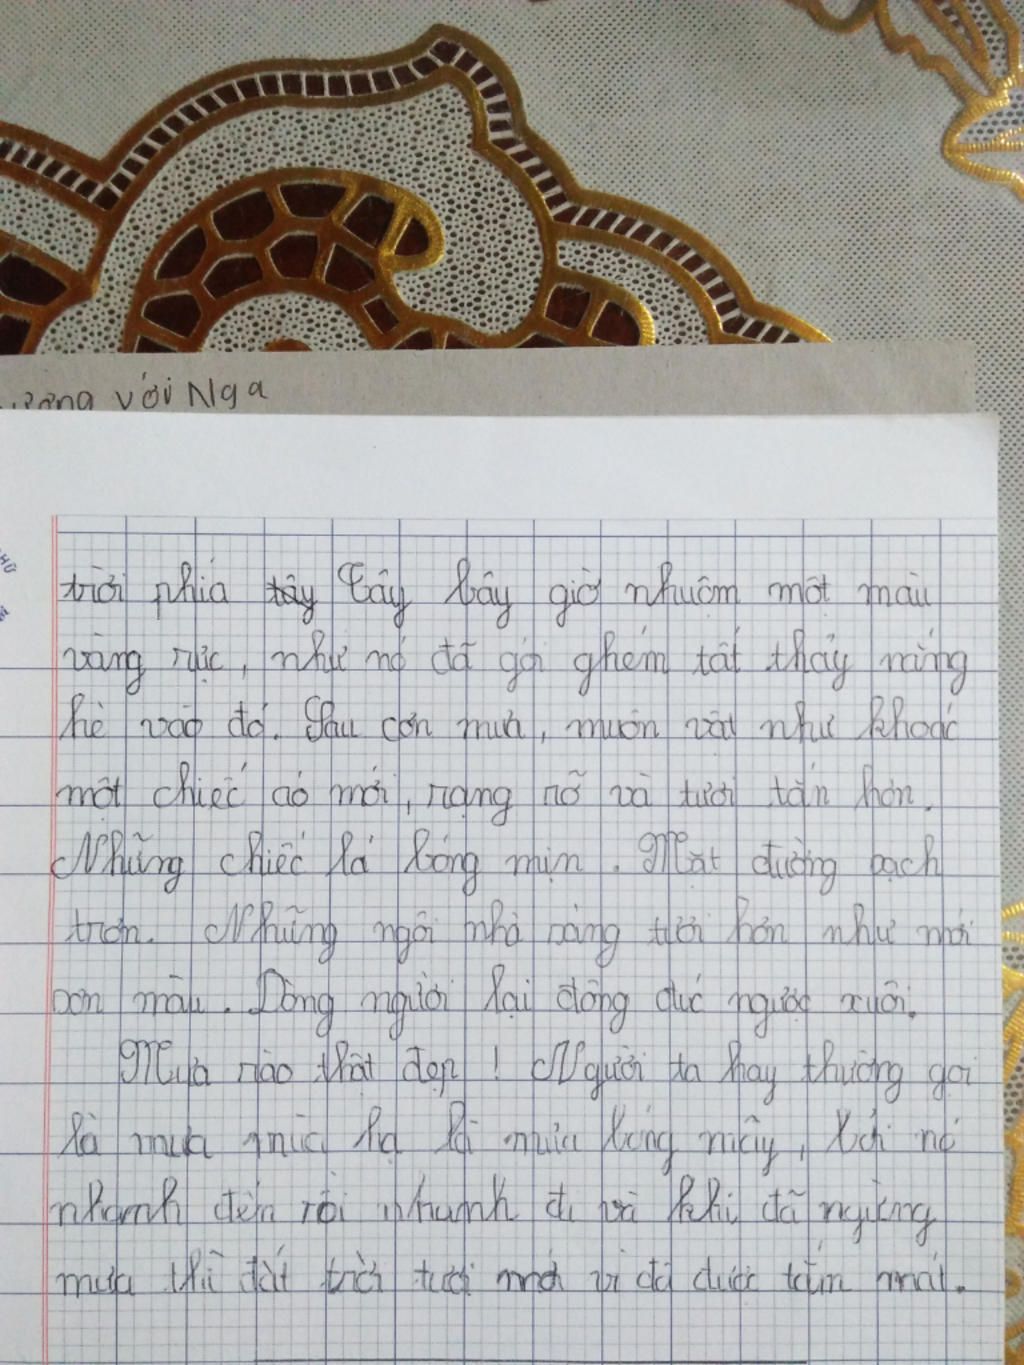 với Nga
trời phía tây Tây bây giờ nhuôm một màu
vàng rực, như nó đã gói ghém tất thảy nắng
hè vào đó. Sau cơn mưa, muôn vật như khoác
một chiếc áo mới, rạng rỡ và tươi tắn hơn.
Những chiếc lá bóng mịn. Mặt đường bạch
trơn. Những ngôi nhà sáng tươi hơn như mới
sơn màu. Dòng người lại đông đúc ngược xuôi.
Mưa rào thật đẹp! Người ta hay thường gọi
là mưa mùa hạ là mưa bóng mây, bởi nó
nhanh đến rồi nhanh đi và khi đã ngừng
mưa thì đất trời tươi mới vì đã được tắm mát.